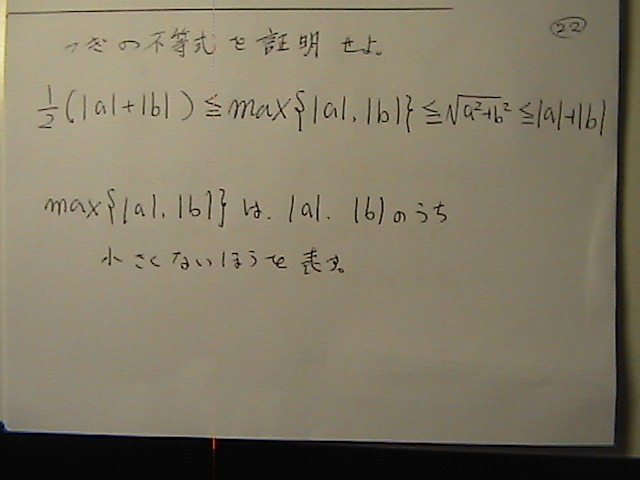 22
つぎの不等式を証明せよ。
1/2(|a|+|b|)≦max{|a|,|b|}≦√a²+b²≦|a|+|b|
max{|a|,|b|}は、|a|、|b|のうち
小さくないほうを表す。